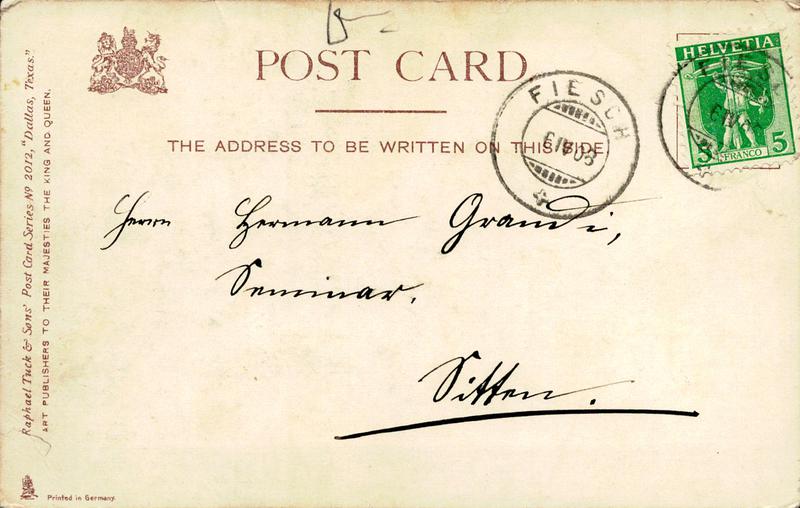 POST CARD
THE ADDRESS TO BE WRITTEN ON THIS SIDE
HELVETIA
5 FRANCO 5
FIESCH
Herrn Hermann Grandi,
Seminar.
Sitten.
Raphael Tuck & Sons' Post Card Series No 2012, "Dallas, Texas."
ART PUBLISHERS TO THEIR MAJESTIES THE KING AND QUEEN.
Printed in Germany.